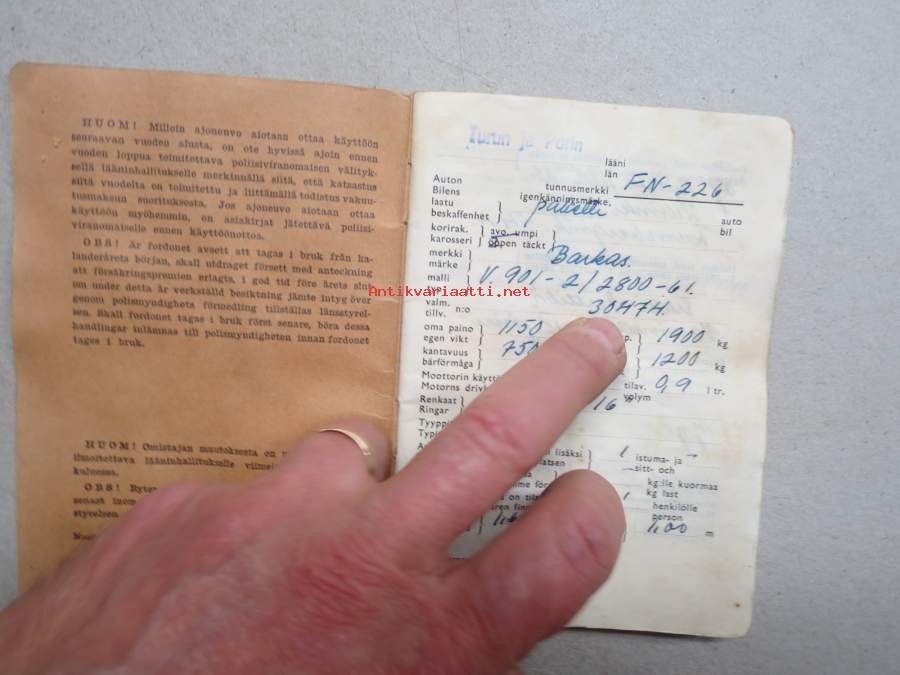 HUOM! Milloin ajoneuvo aiotaan ottaa käyttöön
seuraavan vuoden alusta, on ote hyvissä ajoin ennen
vuoden loppua toimitettava poliisiviranomaisen välityk-
sellä lääninhallitukselle merkinnällä siitä, että katsastus
siltä vuodelta on toimitettu ja liittämällä todistus vakuu-
tusmaksun suorituksesta. Jos ajoneuvo aiotaan ottaa
käyttöön myöhemmin, on asiakirjat jätettävä poliisi-
viranomaiselle ennen käyttöönottoa.
OBS! Är fordonet avsett att tagas i bruk från ka-
lenderårets början, skall utdraget försett med anteckning
att försäkringspremien erlagts, i god tid före årets slut
om under detta år verkställd besiktning jämte intyg över
genom polismyndighets förmedling tillställas länsstyrel-
sen. Skall fordonet tagas i bruk först senare, böra dessa
handlingar inlämnas till polismyndigheten innan fordonet
tages i bruk.
HUOM! Omistajan muutoksesta on
ilmoitettava lääninhallitukselle
kuluessa.
OBS!
senast inom
styrelsen.
Turun ja Porin
lääni
län
Auton tunnusmerkki FN-226
Bilens igenkänningsmärke
laatu auto
beskaffenhet bil
korirak. avo. umpi
karosseri öppen täckt
merkki Barkas.
märke
malli V 901-2/2800-61.
Antikvariaatti.net
valm. n:o 30474.
tillv.
oma paino 1150 1900 kg
egen vikt
kantavuus 750 1200 kg
bärförmåga
Moottorin tilav. 0,9 ltr.
Motorns volym
Renkaat 16"
Ringar
lisäksi 1 istuma- ja
sitt- och
kg:lle kuormaa
kg last
henkilölle
person
1,00 m